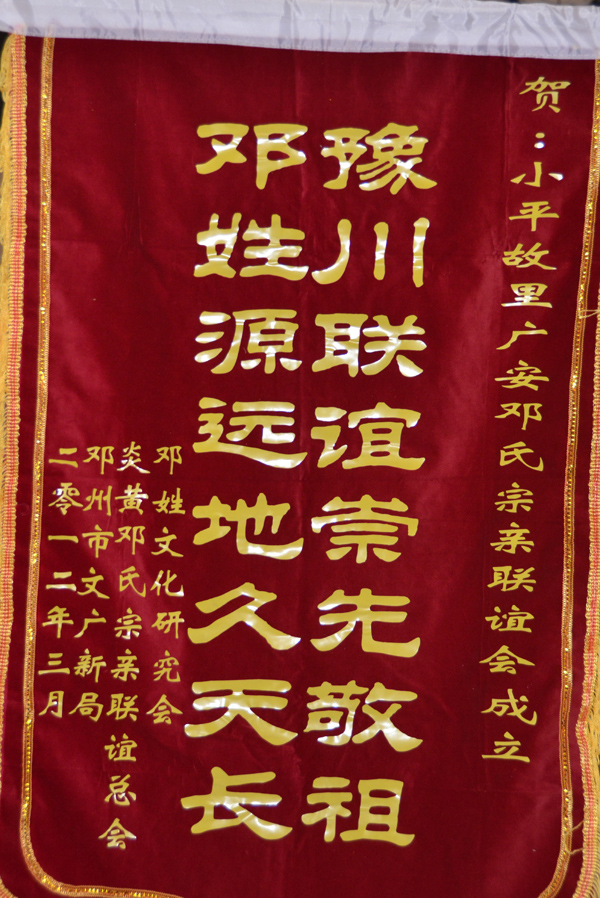 贺：小平故里广安邓氏宗亲联谊会成立
豫川联谊崇先敬祖
邓姓源远地久天长
邓姓文化研究会
炎黄邓氏宗亲联谊总会
邓州市文广新局
二零一二年三月